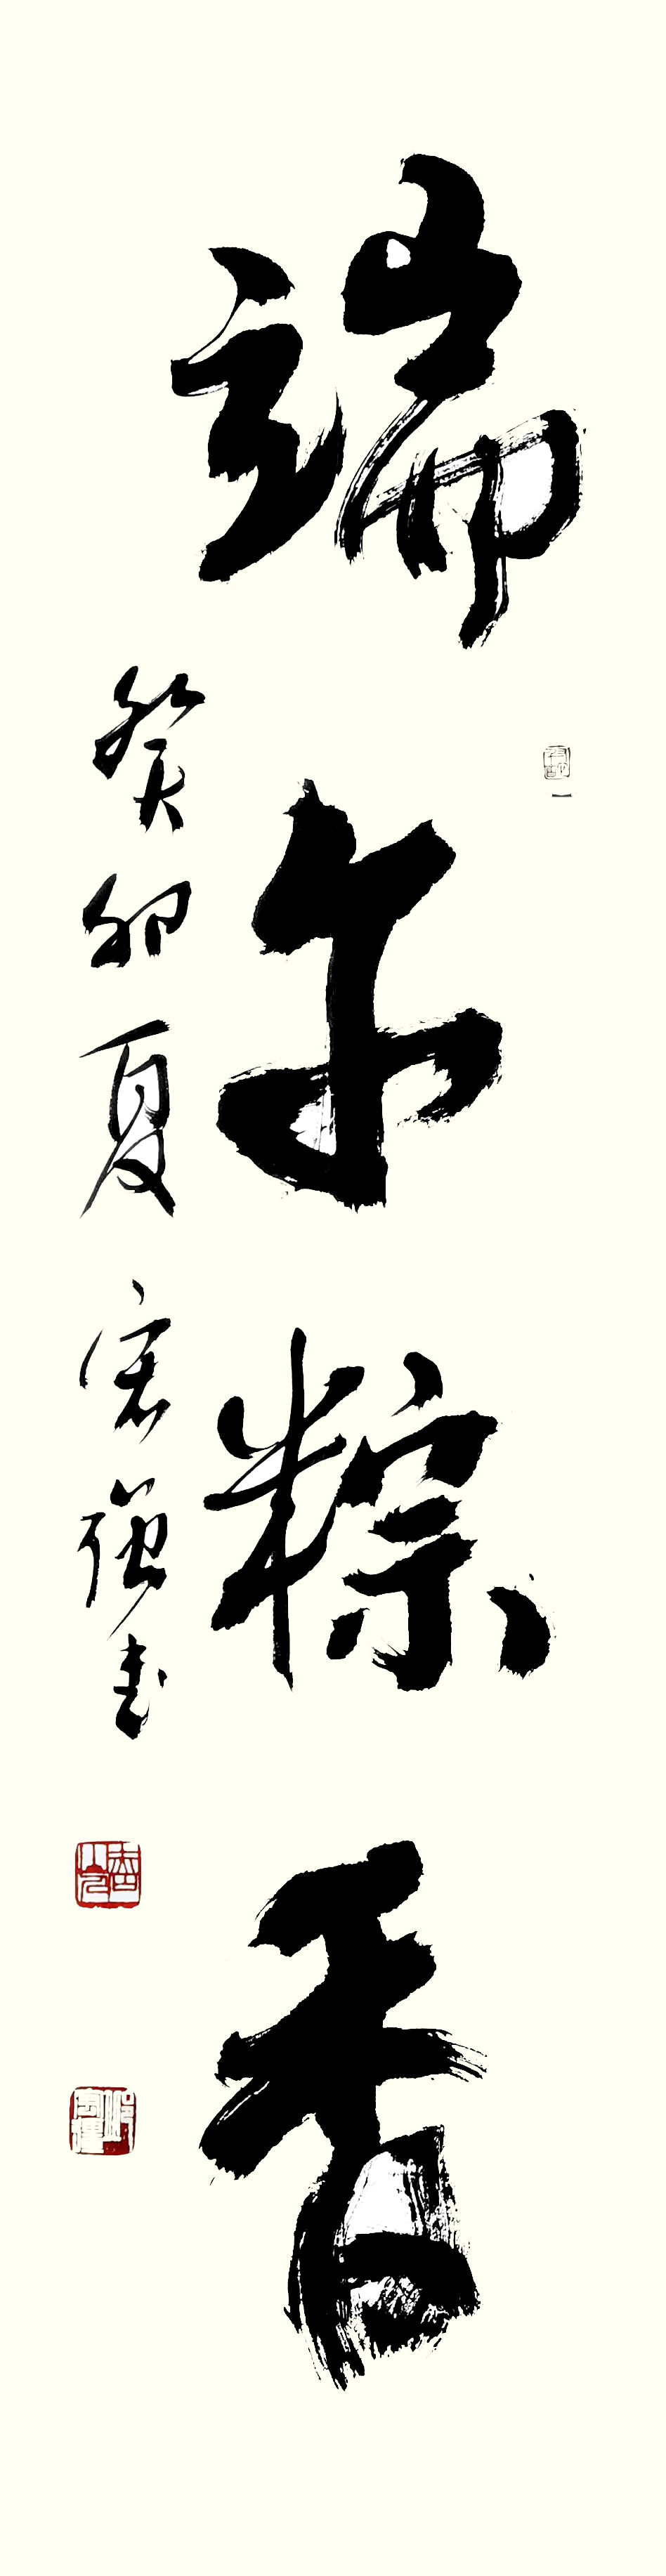 端午粽香
癸卯夏宏强书